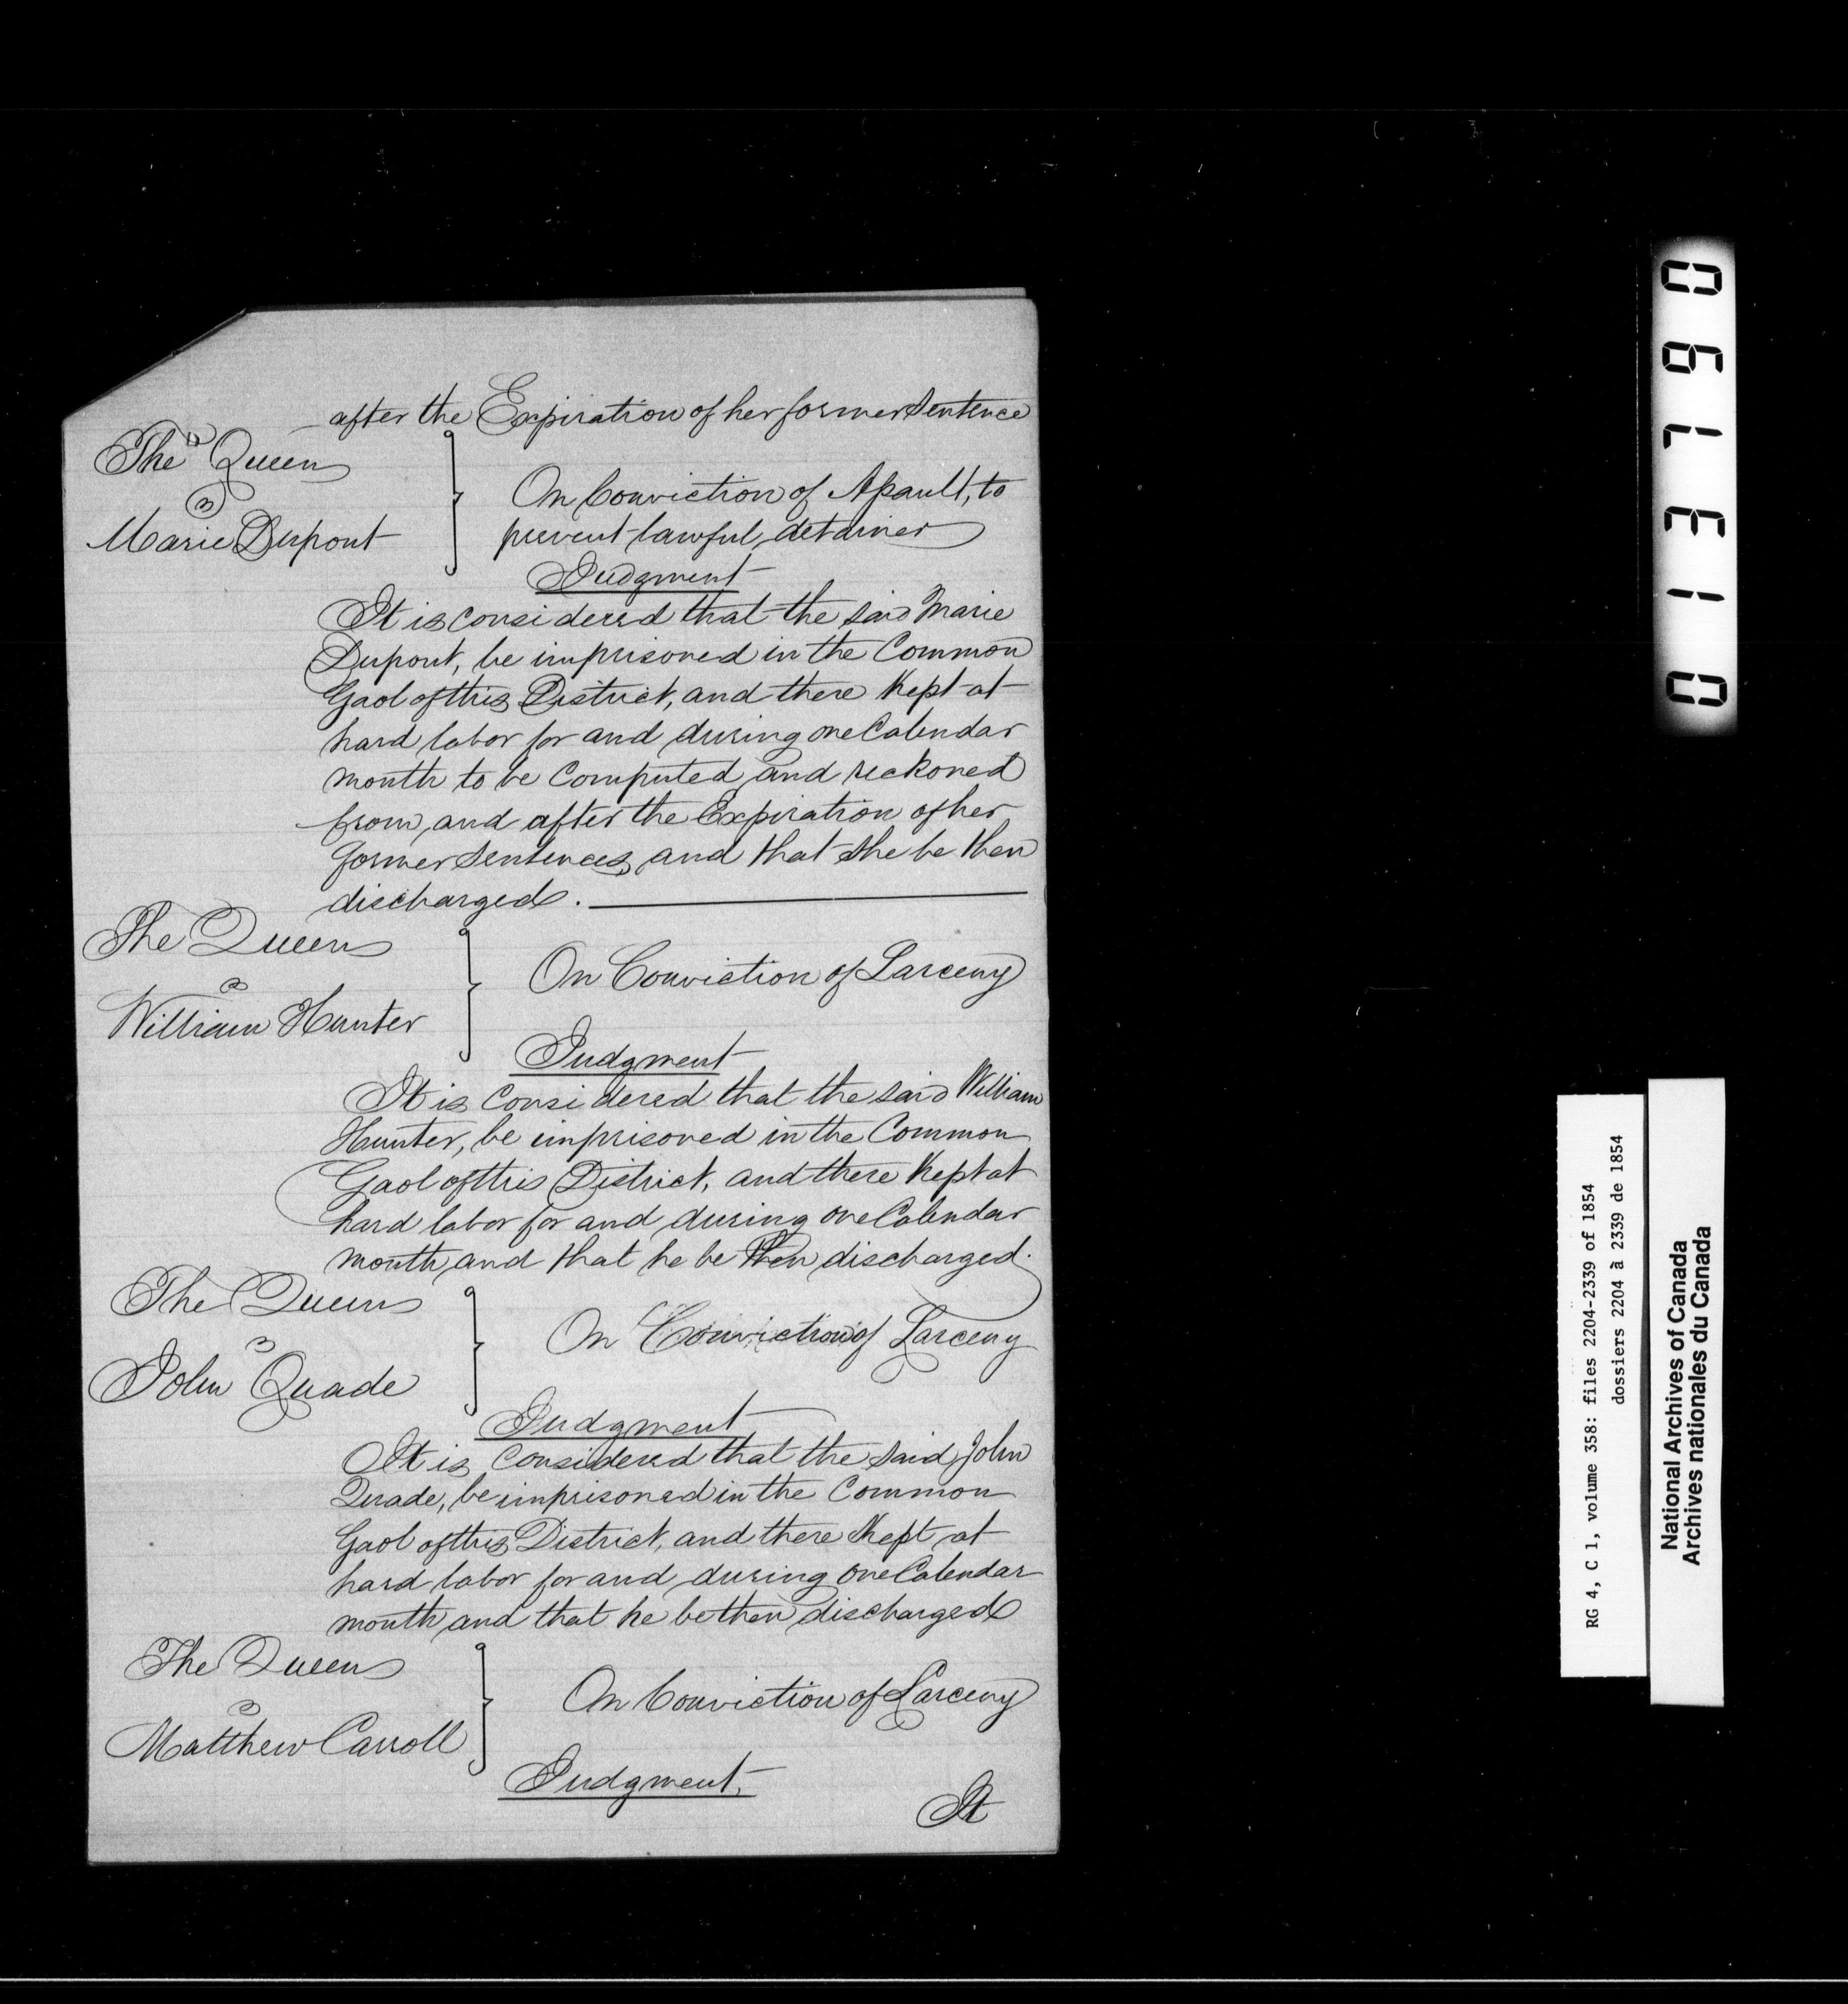 after the Expiration of her former Sentence
The Queen
Marie Dupont
On Conviction of Assault, to
prevent lawful detainer
Judgment
It is considered that the said Marie
Dupont, be imprisoned in the Common
Gaol of this District, and there Kept at
hard labor for and during one Calendar
month to be Computed and reckoned
from and after the Expiration of her
former Sentences, and that she be then
discharged.
The Queen
William Hunter
On Conviction of Larceny
Judgment
It is considered that the said William
Hunter, be imprisoned in the Common
Gaol of this District, and there Kept at
hard labor for and during one Calendar
month and that he be then discharged.
The Queen
John Quade
On Conviction of Larceny
Judgment
It is considered that the said John
Quade, be imprisoned in the Common
Gaol of this District, and there Kept at
hard labor for and during one Calendar
month and that he be then discharged
The Queen
Matthew Carroll
On Conviction of Larceny
Judgment.
It
013790
RG 4, C 1, volume 358: files 2204-2339 of 1854
dossiers 2204 à 2339 de 1854
National Archives of Canada
Archives nationales du Canada